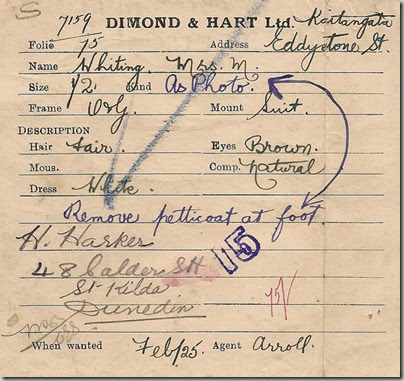 S
7159 DIMOND & HART Ltd. Kaitangata
Folio 75 Address Eddystone St.
Name Whiting, Mrs. M.
Size 12 Kind As Photo.
Frame Mount Suit.
DESCRIPTION
Hair Fair. Eyes Brown.
Mous. Comp. Natural
Dress White.
Remove petticoat at foot
H. Harker
48 Calder St
St Kilda
Dunedin
15
When wanted Feb/25. Agent Arroll.